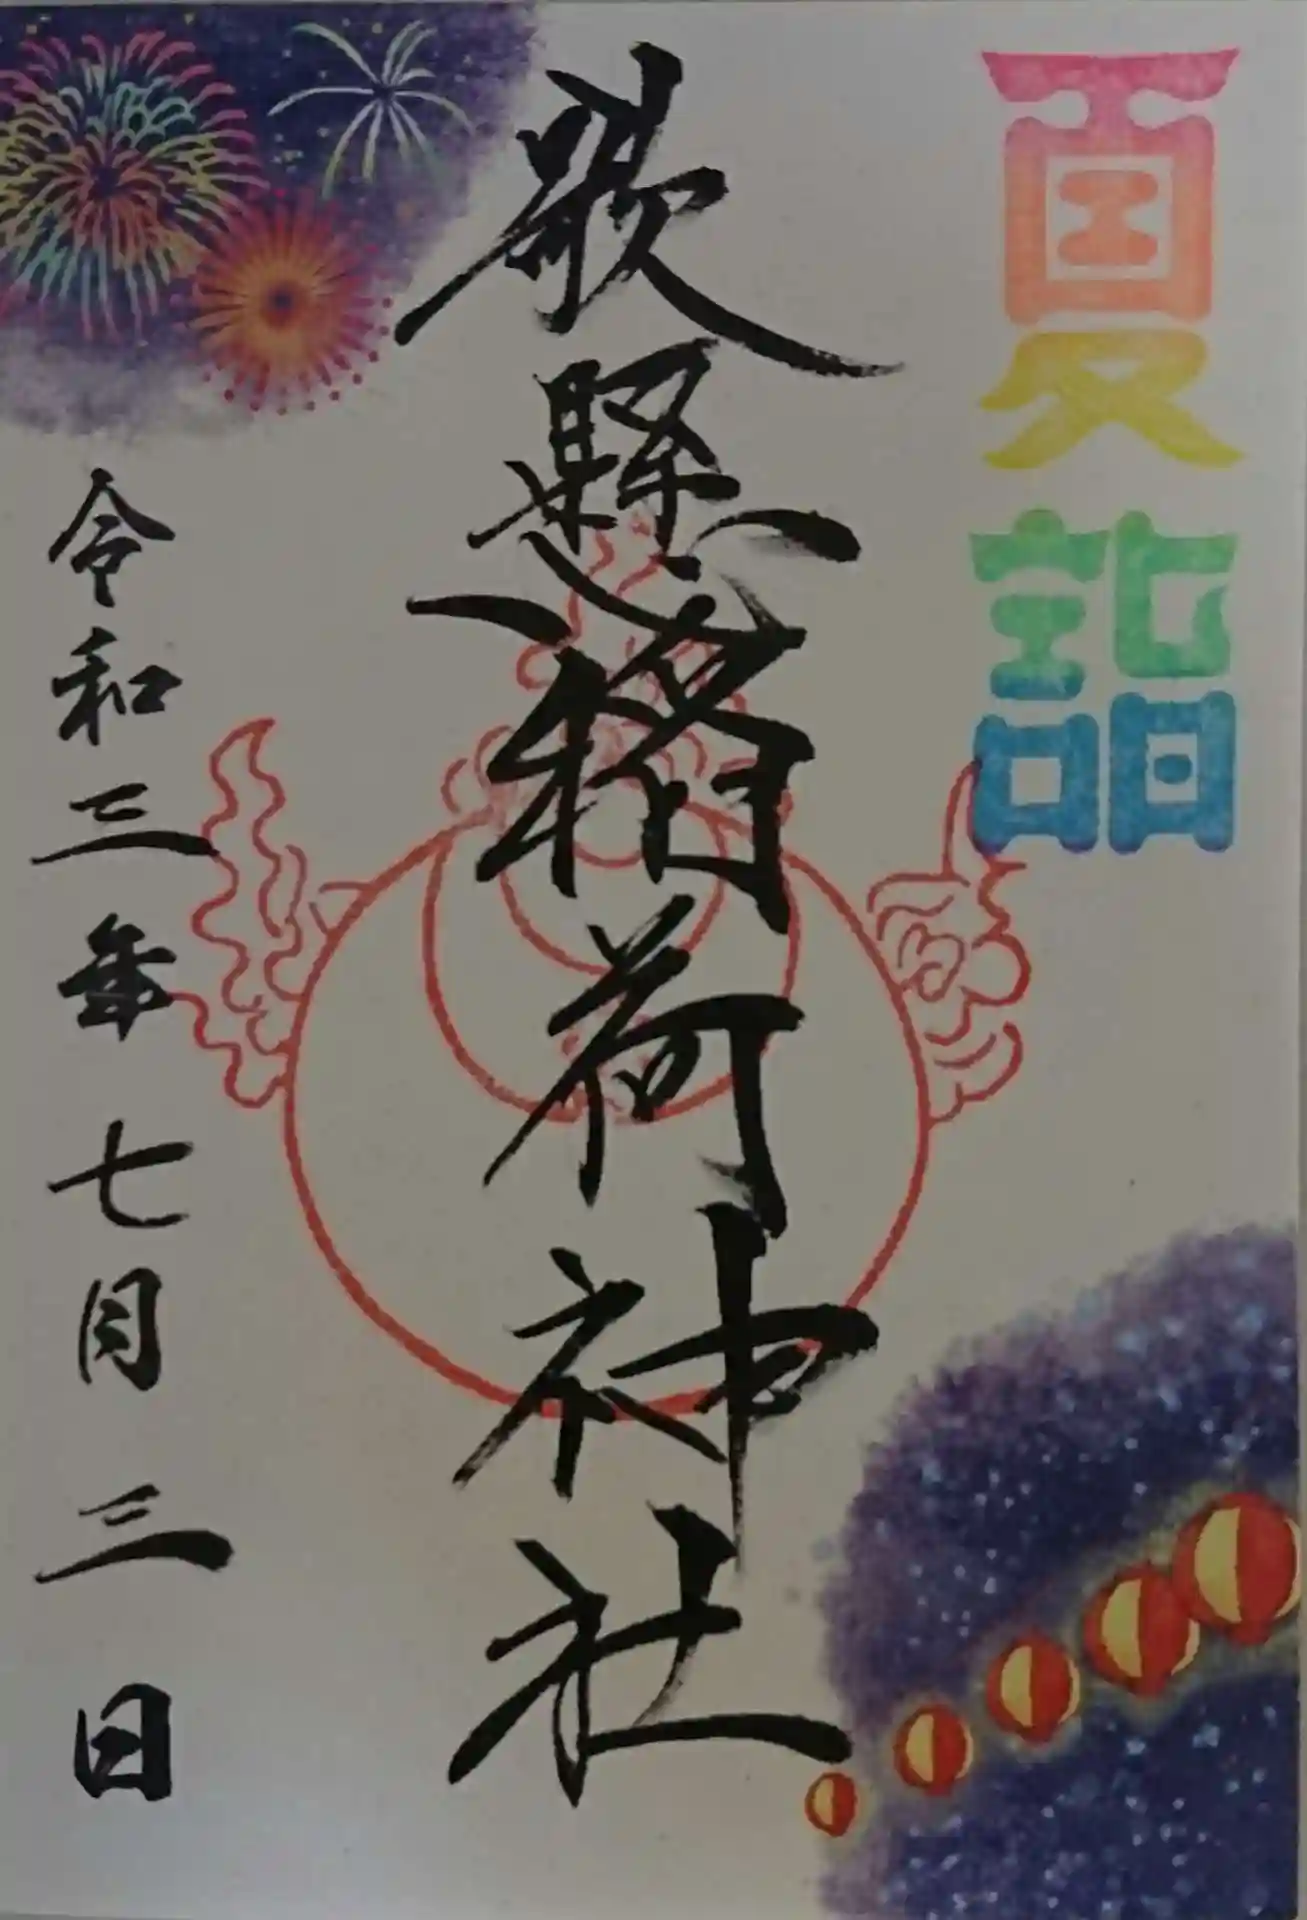 夏詣
歌懸稲荷神社
令和三年七月三日